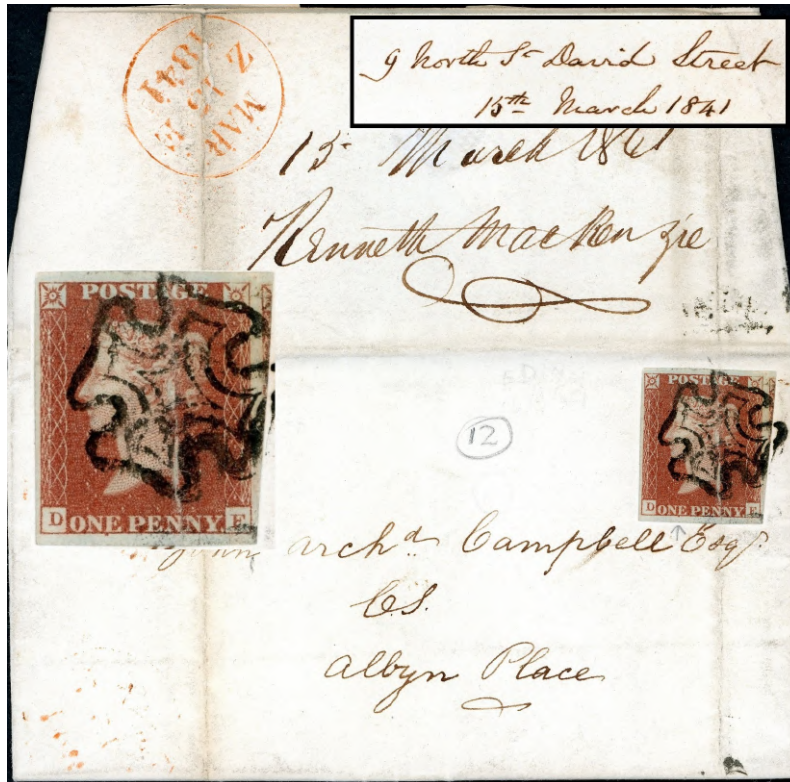 9 North St David Street
15th March 1841
MAR
15
1841
Z
15 March 1841
Kenneth MacKenzie
POSTAGE
D ONE PENNY E
12
POSTAGE
D ONE PENNY E
Archd Campbell Esqr
C.S.
Albyn Place